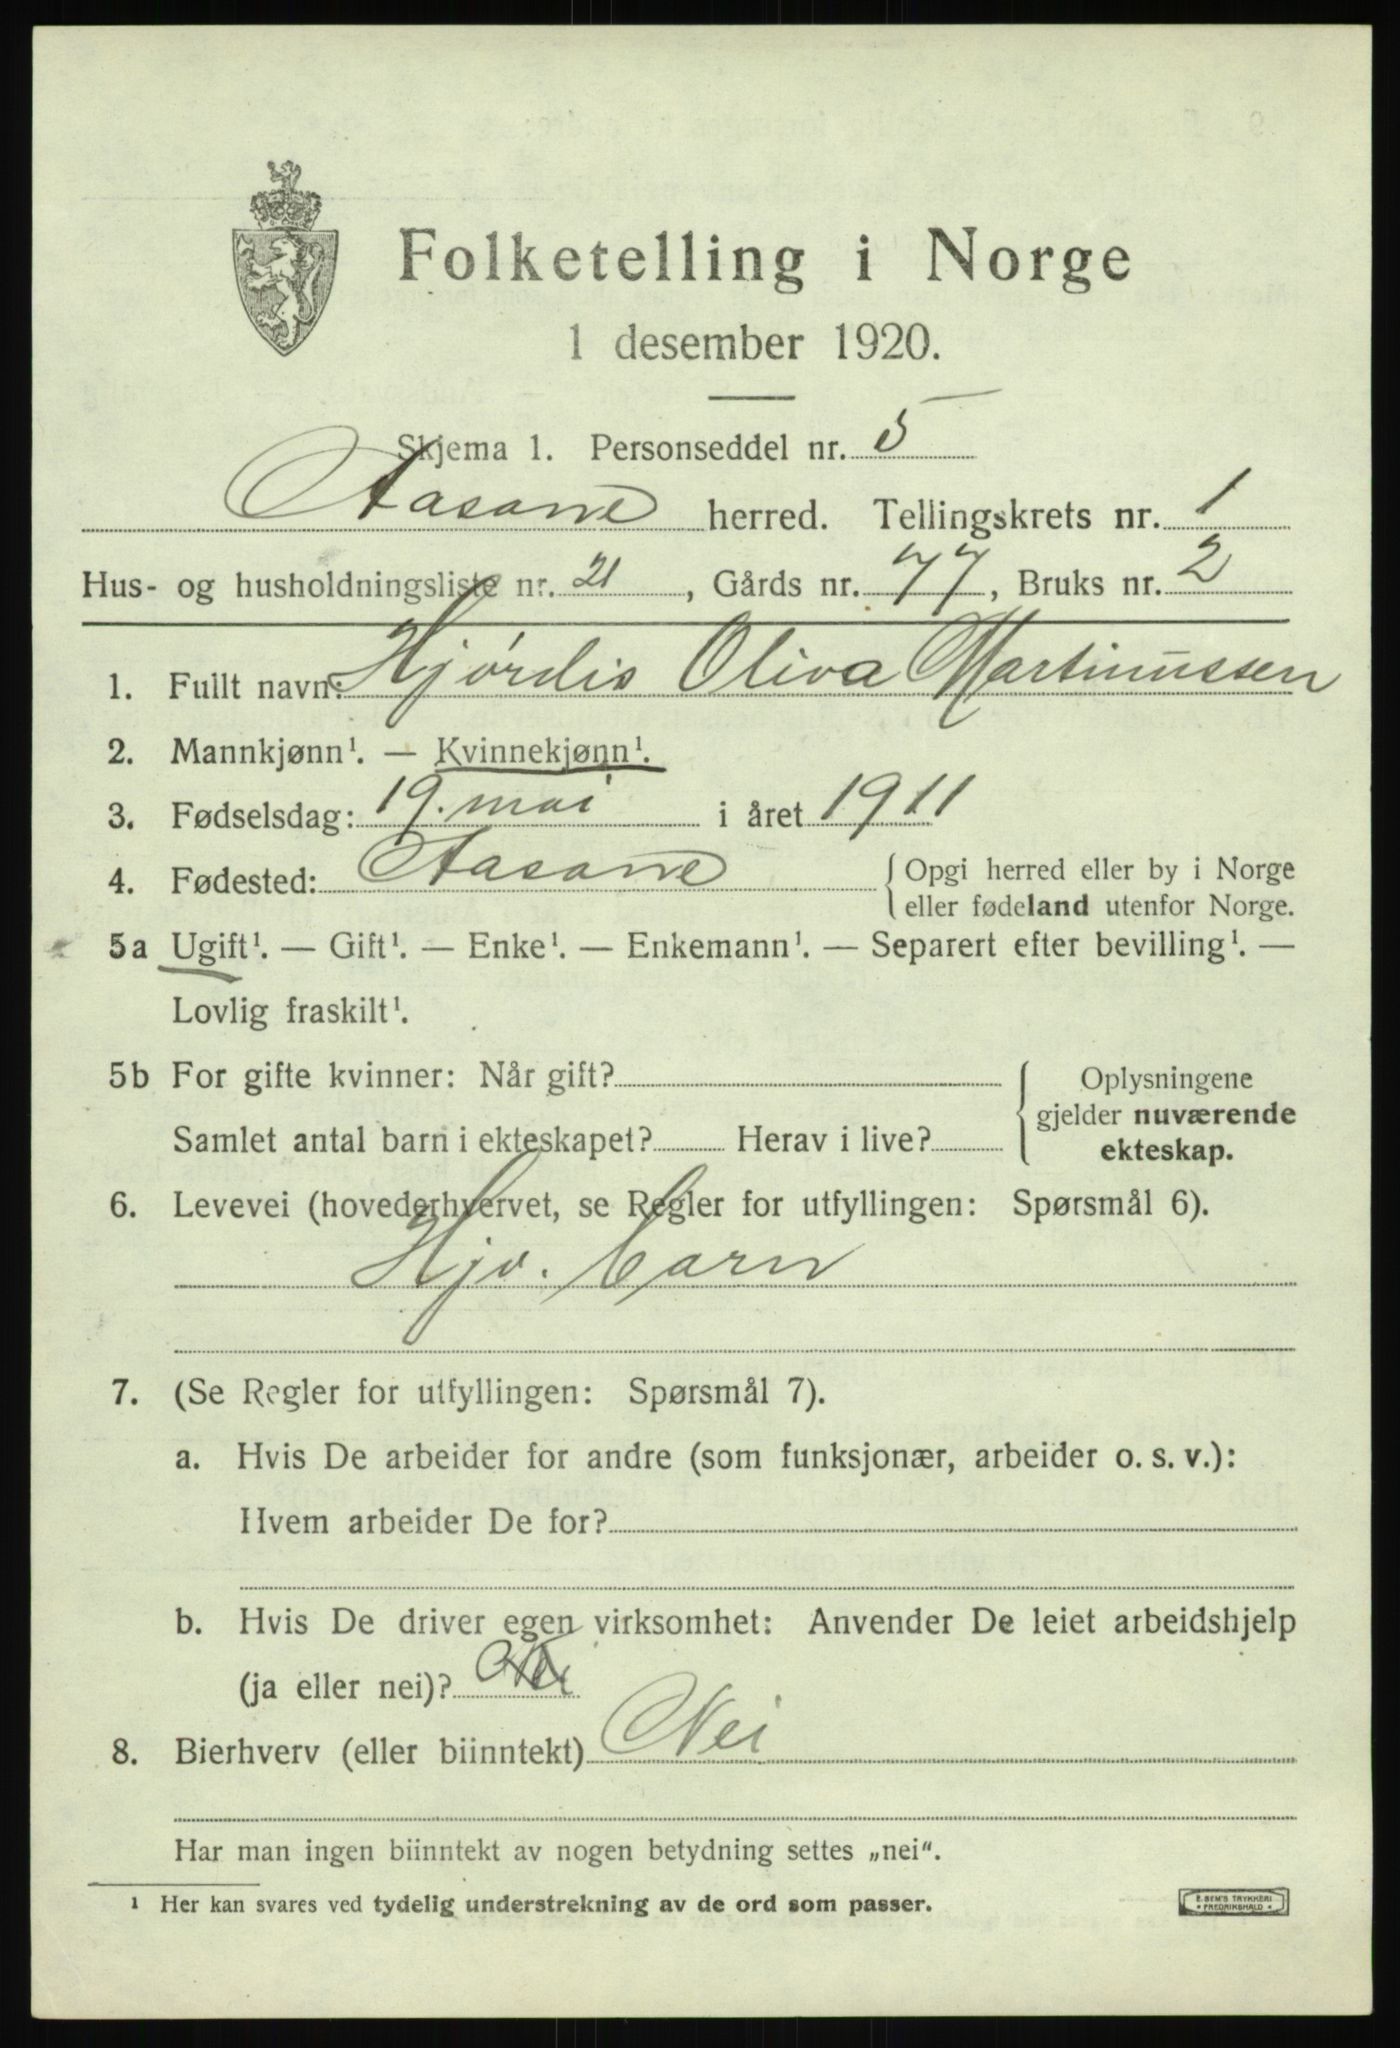 Folketelling i Norge
1 desember 1920.
Skjema 1. Personseddel nr. 5
Aasane herred. Tellingskrets nr. 1
Hus- og husholdningsliste nr. 21, Gårds nr. 77, Bruks nr. 2
1. Fullt navn: Hjørdis Oliva Martinussen
2. Mannkjønn¹. — Kvinnekjønn¹.
3. Fødselsdag: 19. mai i året 1911
4. Fødested: Aasane { Opgi herred eller by i Norge
eller fødeland utenfor Norge.
5a Ugift¹. — Gift¹. — Enke¹. — Enkemann¹. — Separert efter bevilling¹. —
Lovlig fraskilt¹.
5b For gifte kvinner: Når gift? { Oplysningene
gjelder nuværende
Samlet antal barn i ekteskapet? Herav i live? ekteskap.
6. Levevei (hovederhvervet, se Regler for utfyllingen: Spørsmål 6).
Hjv. barn
7. (Se Regler for utfyllingen: Spørsmål 7).
a. Hvis De arbeider for andre (som funksjonær, arbeider o. s. v.):
Hvem arbeider De for?
b. Hvis De driver egen virksomhet: Anvender De leiet arbeidshjelp
(ja eller nei)? Nei
8. Bierhverv (eller biinntekt) Nei
Har man ingen biinntekt av nogen betydning settes „nei“.
¹ Her kan svares ved tydelig understrekning av de ord som passer.
E. SEM'S TRYKKERI
FREDRIKSHALD